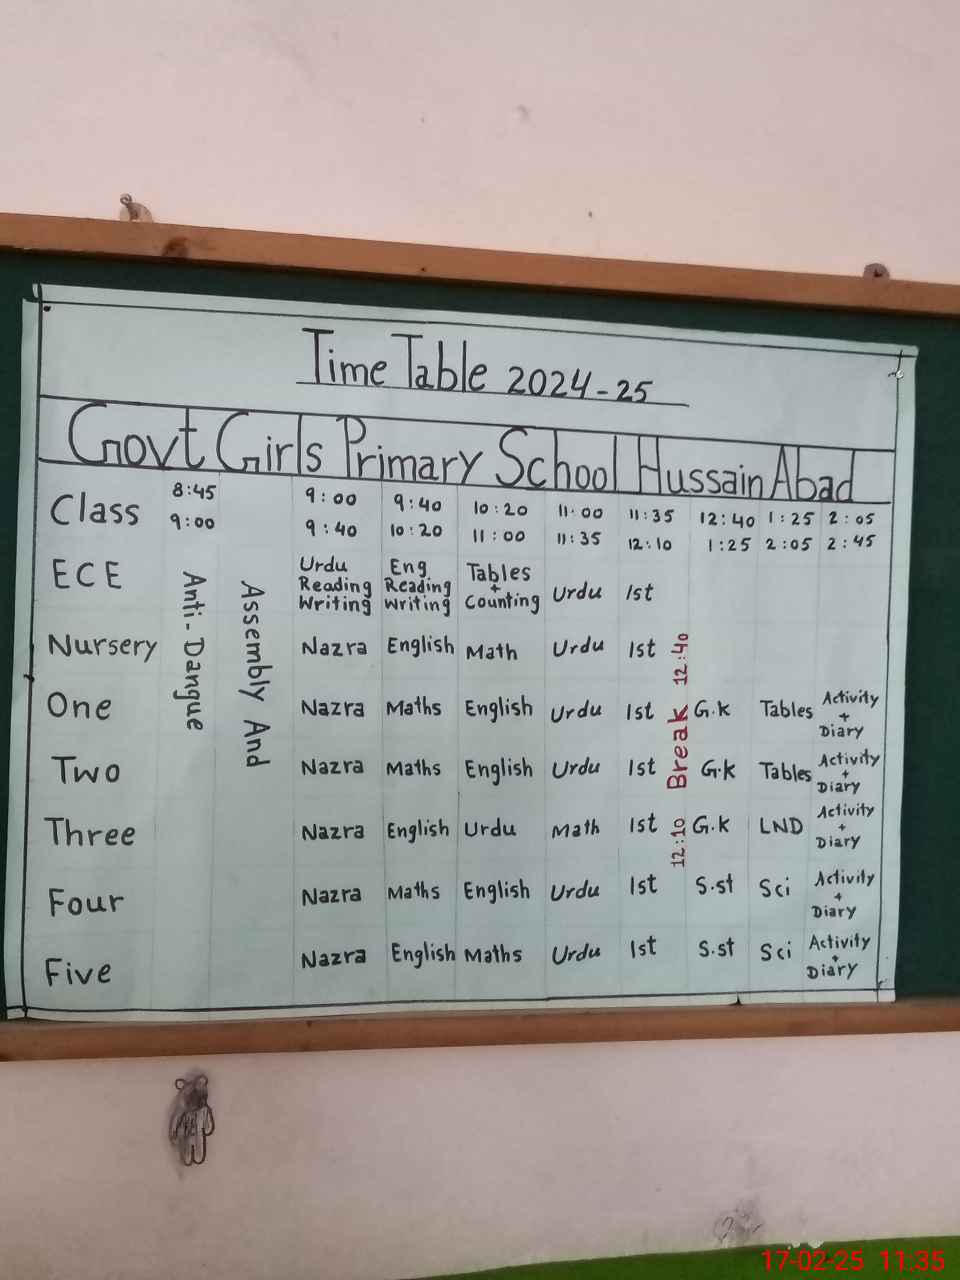 Time Table 2024-25
Govt Girls Primary School Hussain Abad
Class 8:45 9:00 9:40 10:20 11:00 11:35 12:40 1:25 2:05
9:00 9:40 10:20 11:00 11:35 12:10 1:25 2:05 2:45
Anti-Dangue
Assembly And
ECE Urdu Reading Writing Eng Reading Writing Tables + Counting Urdu Ist
Nursery Nazra English Math Urdu Ist
One Nazra Maths English Urdu Ist G.k Tables Activity + Diary
Two Nazra Maths English Urdu Ist G.k Tables Activity + Diary
Three Nazra English Urdu Math Ist G.k LND Activity + Diary
Four Nazra Maths English Urdu Ist S.st Sci Activity + Diary
Five Nazra English Maths Urdu Ist S.st Sci Activity + Diary
12:10 Break 12:40
17-02-25 11:35